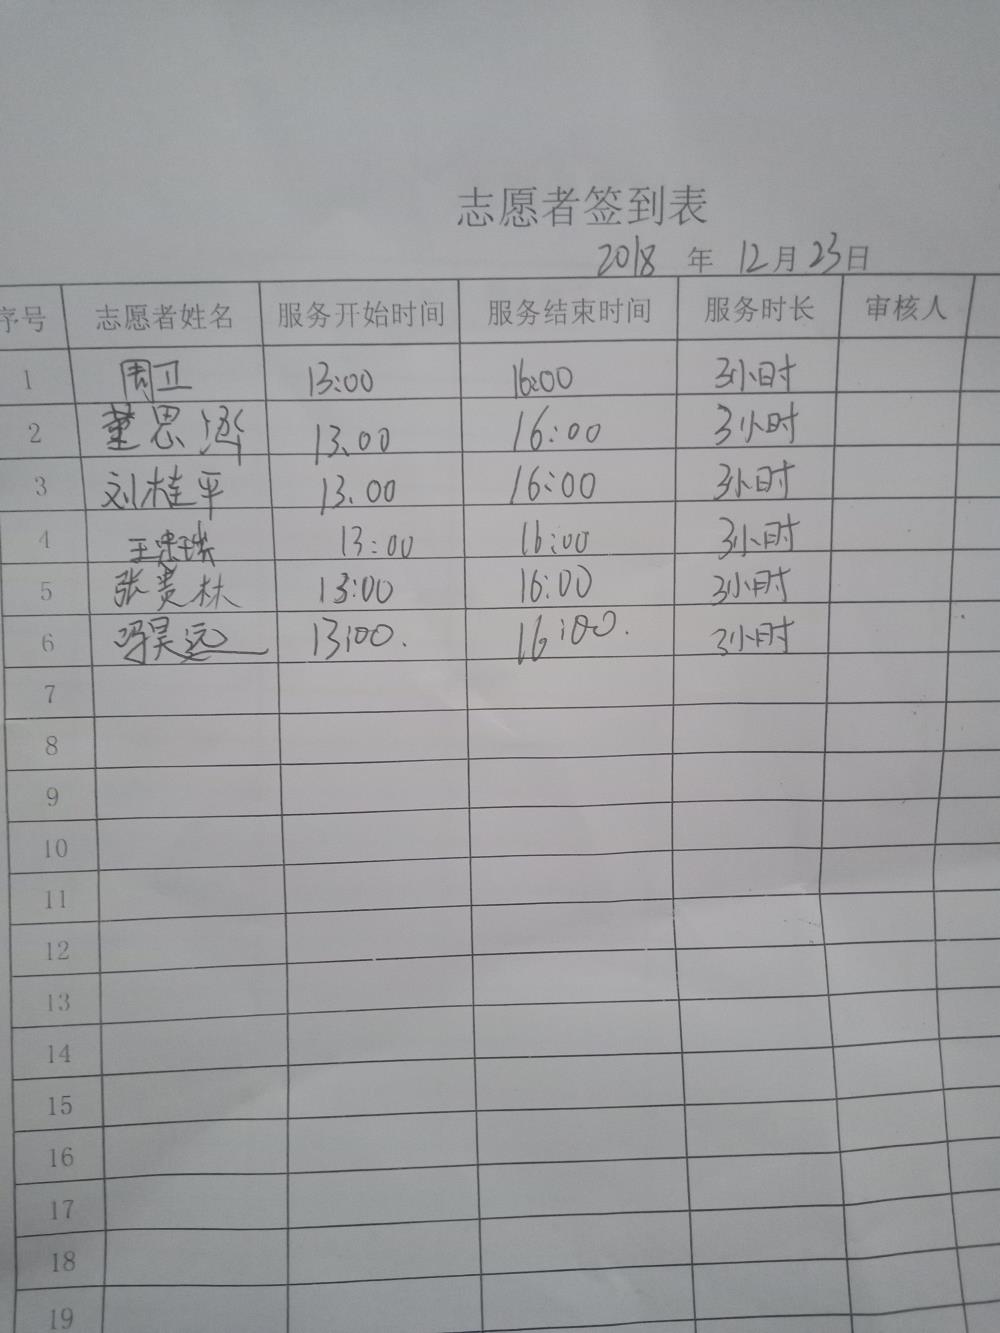 志愿者签到表
2018 年 12月 23日
序号 志愿者姓名 服务开始时间 服务结束时间 服务时长 审核人
1 周卫 13:00 16:00 3小时
2 董思 13.00 16:00 3小时
3 刘桂平 13.00 16:00 3小时
4 王忠瑞 13:00 16:00 3小时
5 张贵林 13:00 16:00 3小时
6 冯昊远 13:00. 16:00. 3小时
7
8
9
10
11
12
13
14
15
16
17
18
19